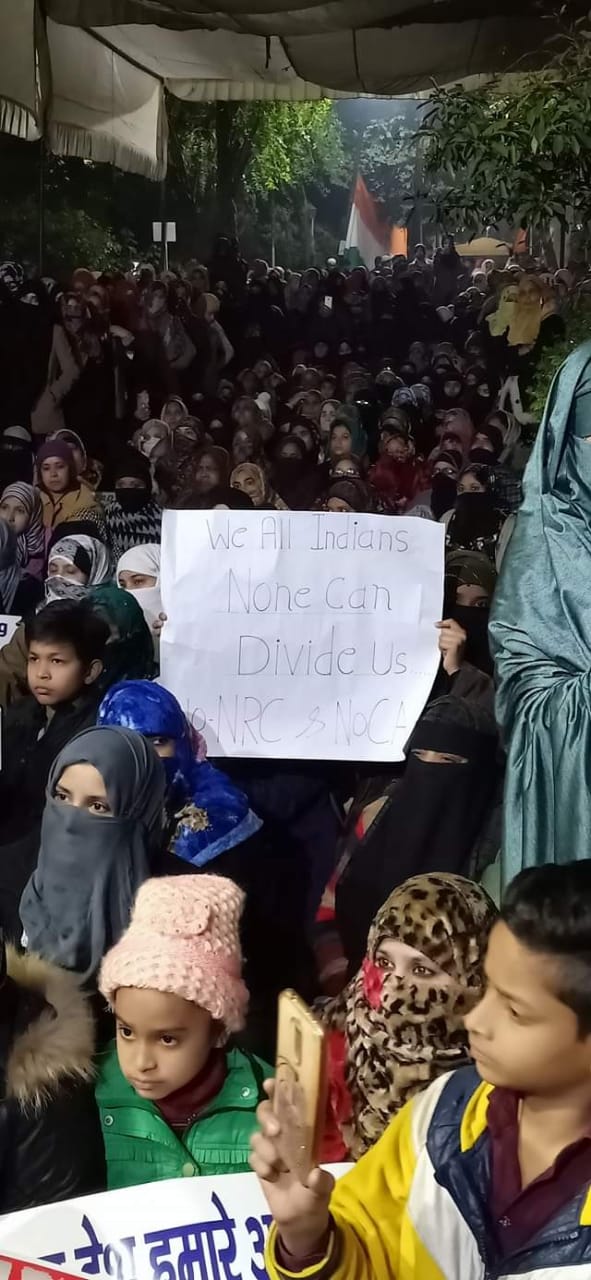 We All Indians
None Can
Divide Us.....
o-NRC & NoCA
देश हमारे